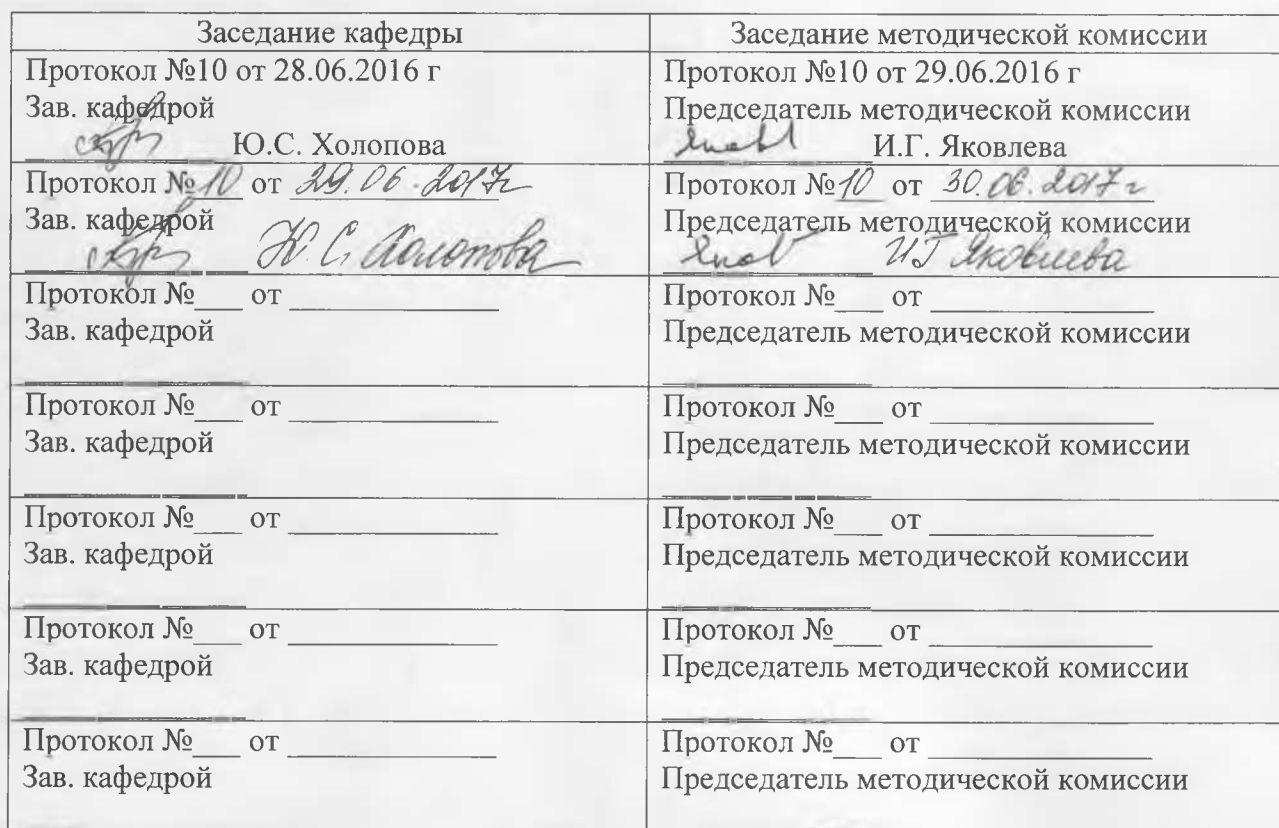 Заседание кафедры
Заседание методической комиссии
Протокол №10 от 28.06.2016 г
Зав. кафедрой
Ю.С. Холопова
Протокол №10 от 29.06.2016 г
Председатель методической комиссии
И.Г. Яковлева
Протокол №10 от 29.06.2017г
Зав. кафедрой
Ю.С. Холопова
Протокол №10 от 30.06.2017г
Председатель методической комиссии
ИГ Яковлева
Протокол №___ от ___
Зав. кафедрой
Протокол №___ от ___
Председатель методической комиссии
Протокол №___ от ___
Зав. кафедрой
Протокол №___ от ___
Председатель методической комиссии
Протокол №___ от ___
Зав. кафедрой
Протокол №___ от ___
Председатель методической комиссии
Протокол №___ от ___
Зав. кафедрой
Протокол №___ от ___
Председатель методической комиссии
Протокол №___ от ___
Зав. кафедрой
Протокол №___ от ___
Председатель методической комиссии